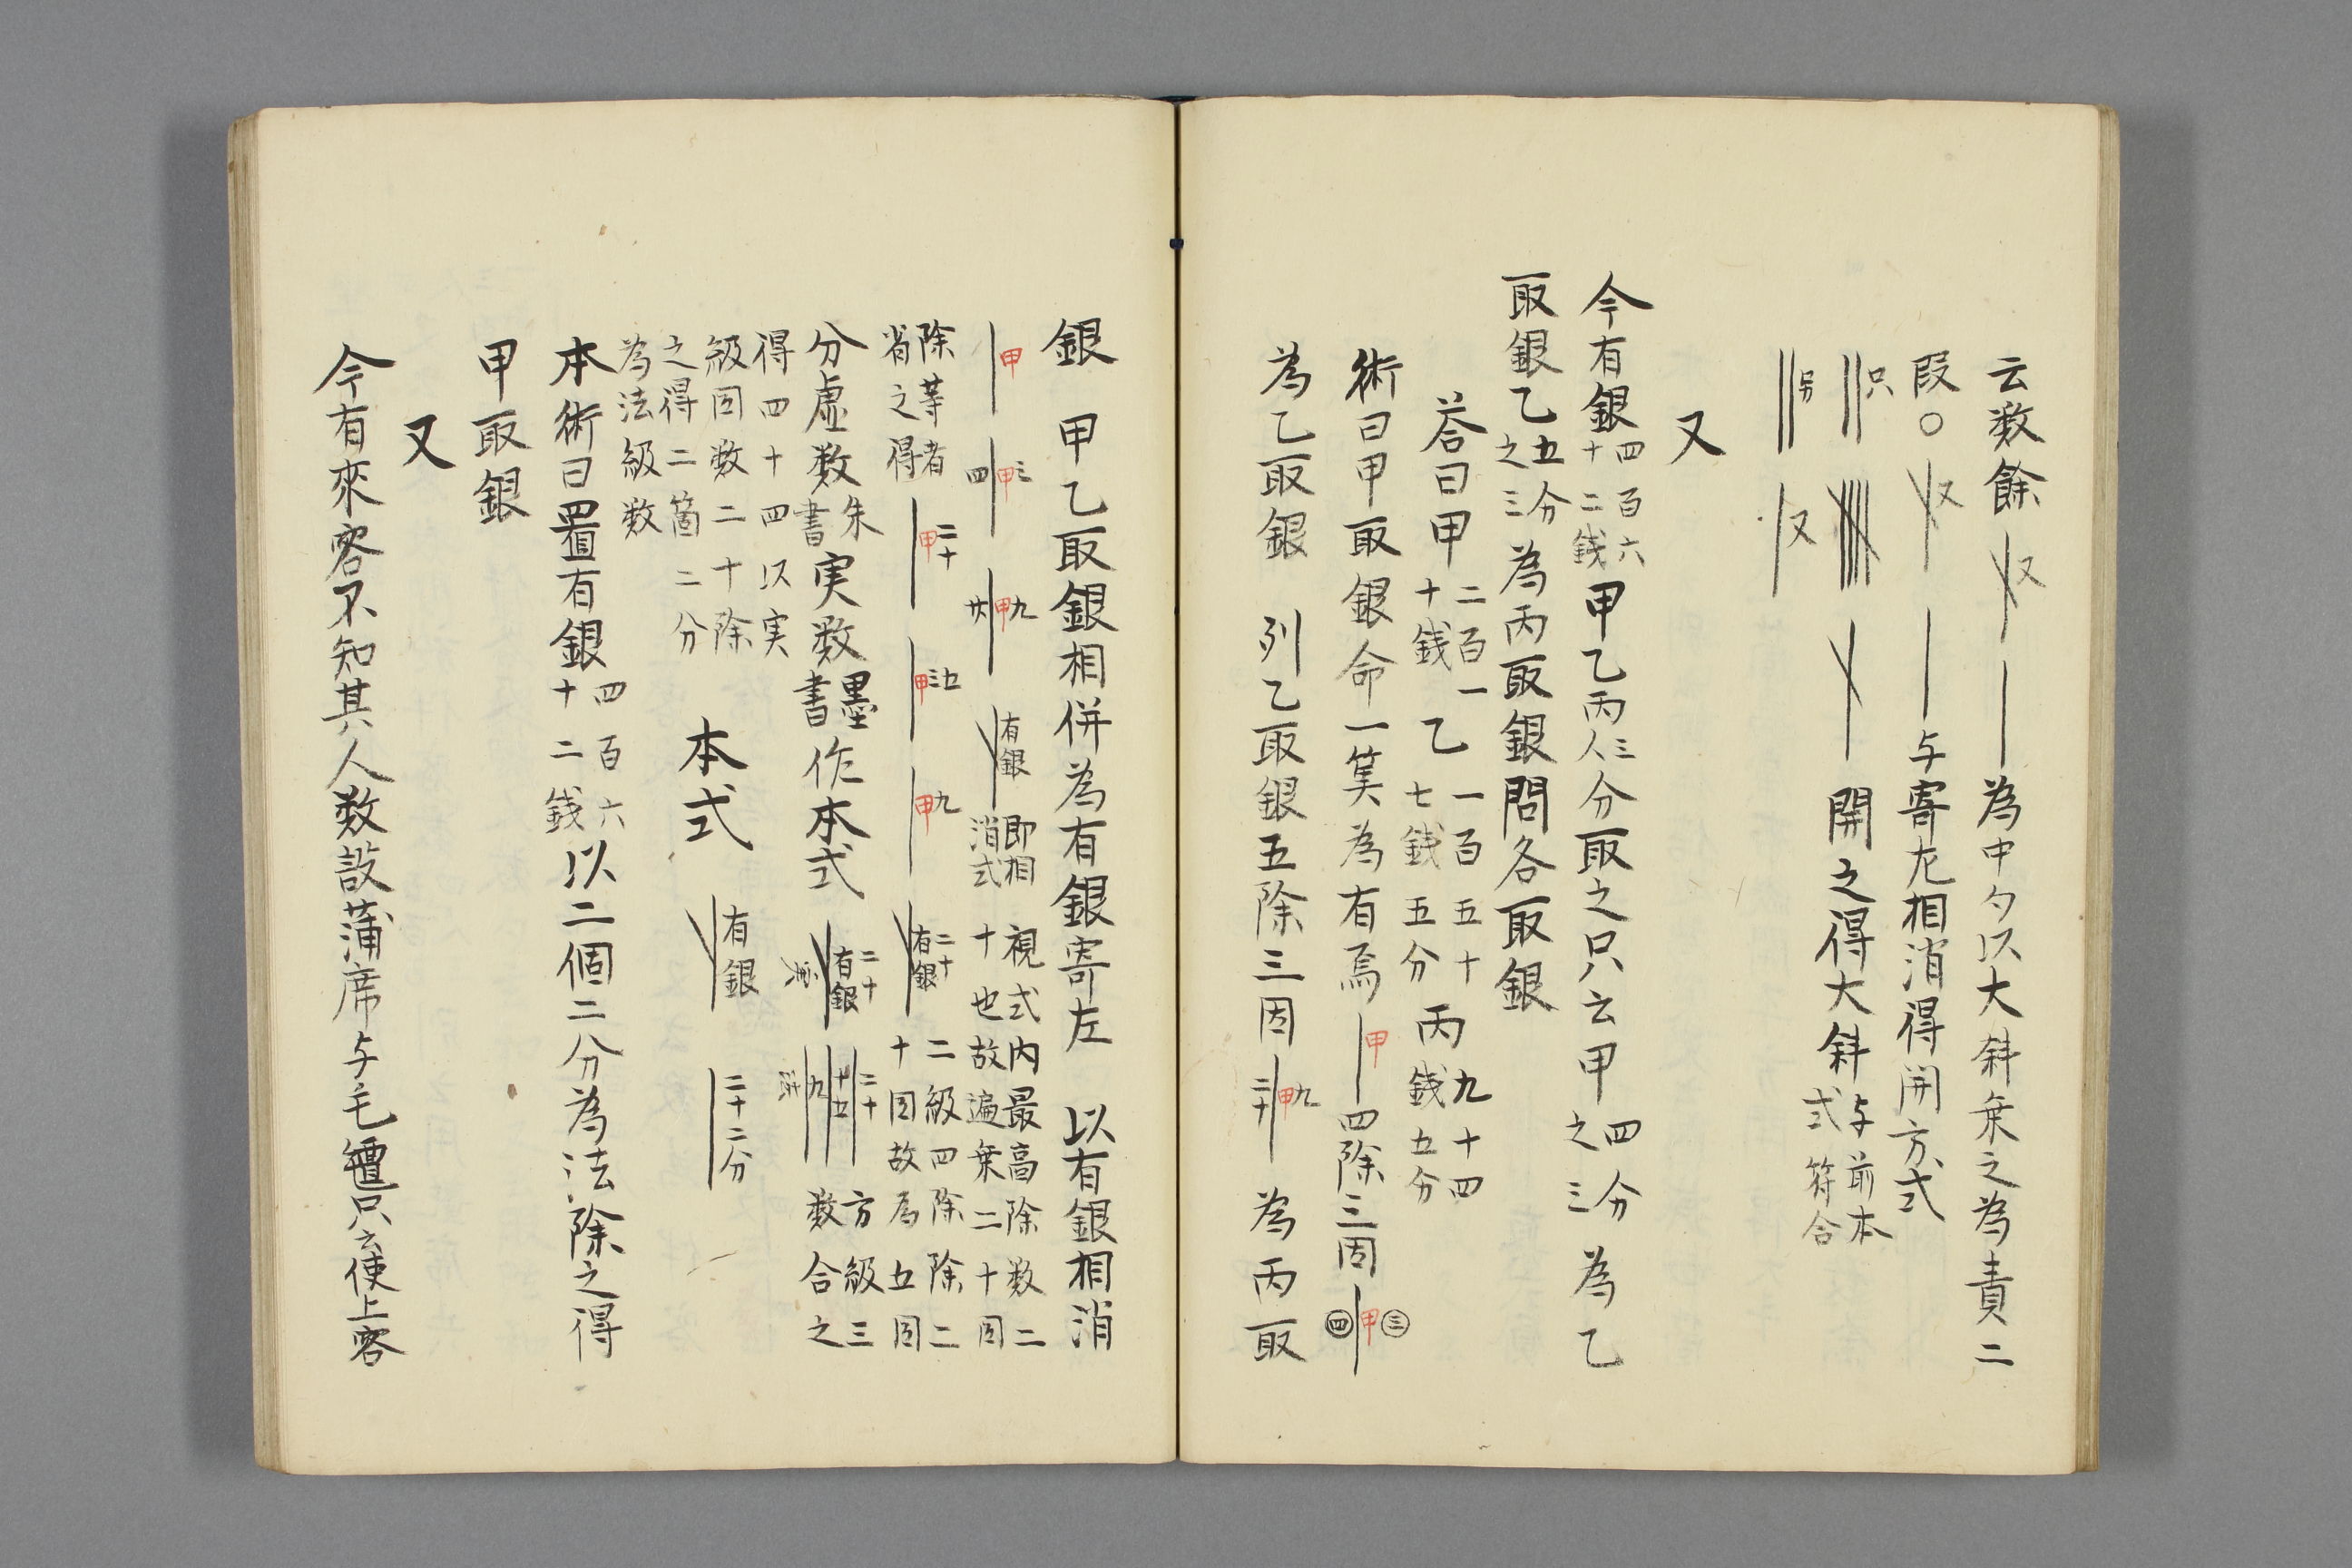 云数餘 又 為中勾以大斜乗之為責二
段〇 又 与寄左相消得開方式
只 開之得大斜 与前本式符合
另 又
又
今有銀 四百六十二銭 甲乙丙 三人 分取之只云甲 四分之三 為乙
取銀乙 五分之三 為丙取銀問各取銀
荅曰甲 二百一十銭 乙 一百五十七銭五分 丙 九十四銭五分
術曰甲取銀命一筭為有焉 甲 四除三因 三甲四
為乙取銀 列乙取銀五除三因 九甲二十 為丙取
銀 甲乙取銀相併為有銀寄左 以有銀相消
甲 三甲四 九甲廿 有銀 即相消式 視式内最高除数二十也故遍乗二十因
除等者省之得 二十甲 五三甲 九甲 二十有銀 二級四除除二十因故為五因
分虚数 朱書 実数 墨書 作本式 二十有銀 実 二十 十五 九 法 方級三数合之
得四十四以実級因数二十除之得二箇二分為法級数
本式 有銀 二十二分
本術曰置有銀 四百六十二銭 以二個二分為法除之得
甲取銀
又
今有來客不知其人数設蒲席与毛氊只云使上客